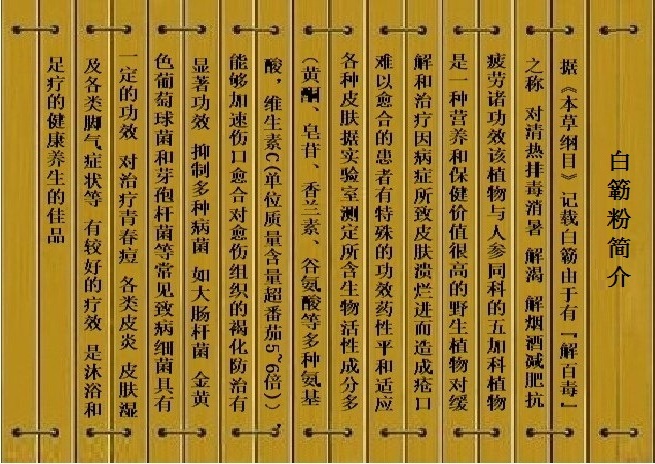 白簕粉简介
据《本草纲目》记载白簕由于有『解百毒』
之称 对清热排毒消暑 解渴 解烟酒减肥抗
疲劳诸功效该植物与人参同科的五加科植物
是一种营养和保健价值很高的野生植物对缓
解和治疗因病症所致皮肤溃烂进而造成疮口
难以愈合的患者有特殊的功效药性平和适应
各种皮肤据实验室测定所含生物活性成分多
（黄酮、皂苷、香兰素、谷氨酸等多种氨基
酸，维生素C(单位质量含量超番茄5~6倍)），
能够加速伤口愈合对愈伤组织的褐化防治有
显著功效 抑制多种病菌 如大肠杆菌 金黄
色葡萄球菌和芽孢杆菌等常见致病细菌具有
一定的功效 对治疗青春痘 各类皮炎 皮肤湿
及各类脚气症状等 有较好的疗效 是沐浴和
足疗的健康养生的佳品